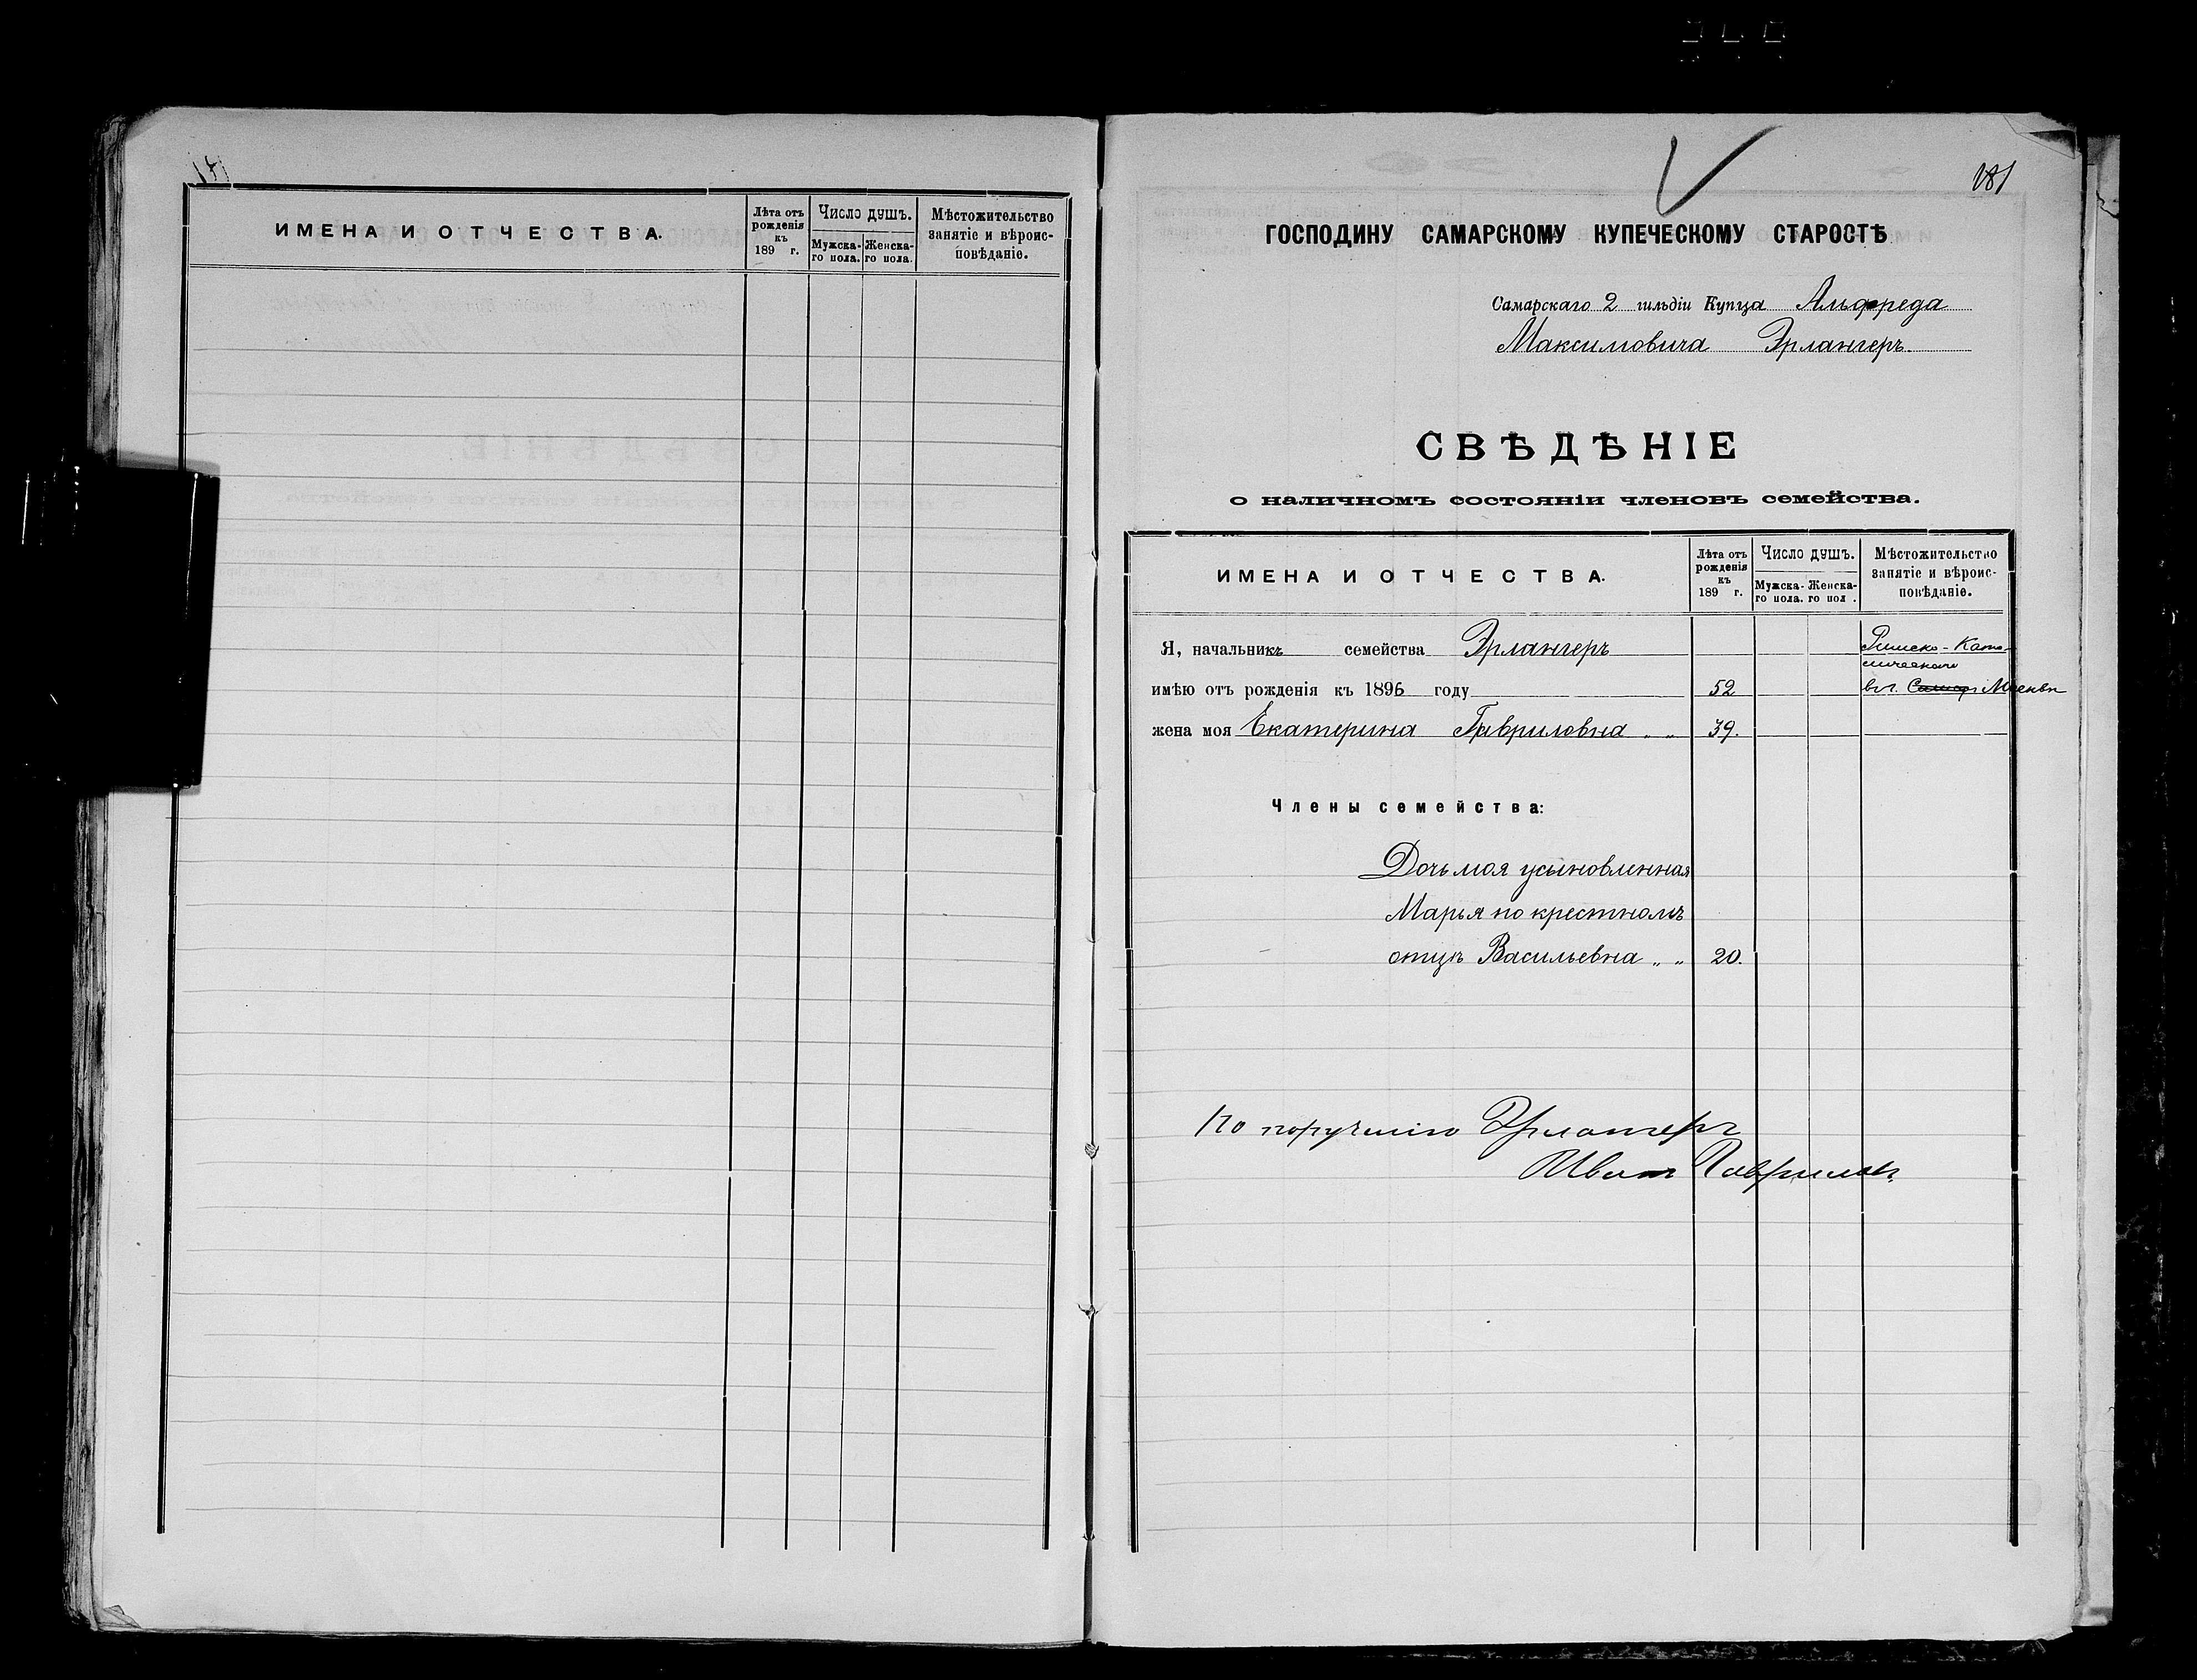 ИМЕНА И ОТЧЕСТВА.
Лѣта отъ рожденія къ 189 г.
Число душъ.
Мужска-го пола.
Женска-го пола.
Мѣстожительство занятіе и вѣроис-повѣданіе.
181
ГОСПОДИНУ САМАРСКОМУ КУПЕЧЕСКОМУ СТАРОСТѢ
Самарскаго 2 гильдіи Купца Альфреда
Максимовича Эрлангеръ.
СВѢДѢНІЕ
о наличномъ состояніи членовъ семейства.
ИМЕНА И ОТЧЕСТВА.
Лѣта отъ рожденія къ 189 г.
Число душъ.
Мужска-го пола.
Женска-го пол .
Мѣстожительство занятіе и вѣроис-повѣданіе.
Я, начальникъ семейства Эрлангеръ Римско-Като-
лическаго
имѣю отъ рожденія къ 1896 году 52 въ г. Самар Москвѣ
жена моя Екатерина Гавриловна „ „ 39.
Члены семейства:
Дочь моя усыновленная
Марья по крестномъ
отцѣ Васильевна „ „ 20.
По порученію Эрлангеръ
Иванъ Гавриловъ